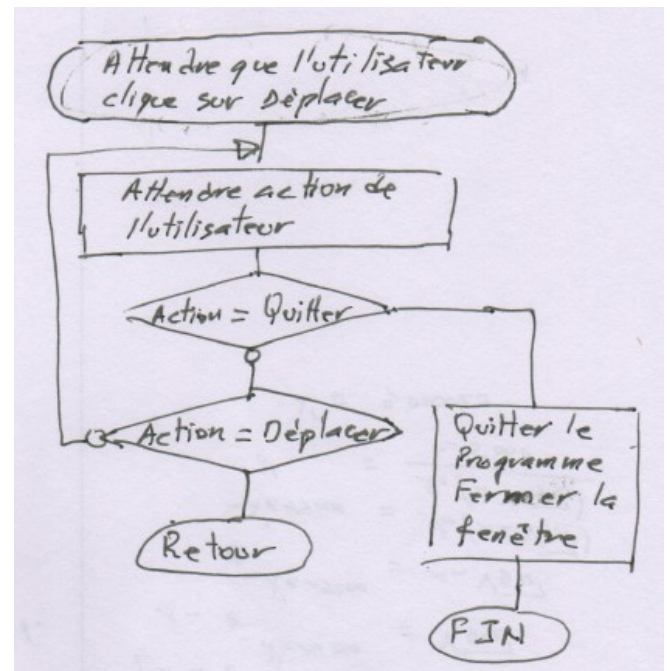 Attendre que l'utilisateur
clique sur Déplacer
Attendre action de
l'utilisateur
Action = Quitter
Action = Déplacer
Quitter le
Programme
Fermer la
fenêtre
Retour
FIN